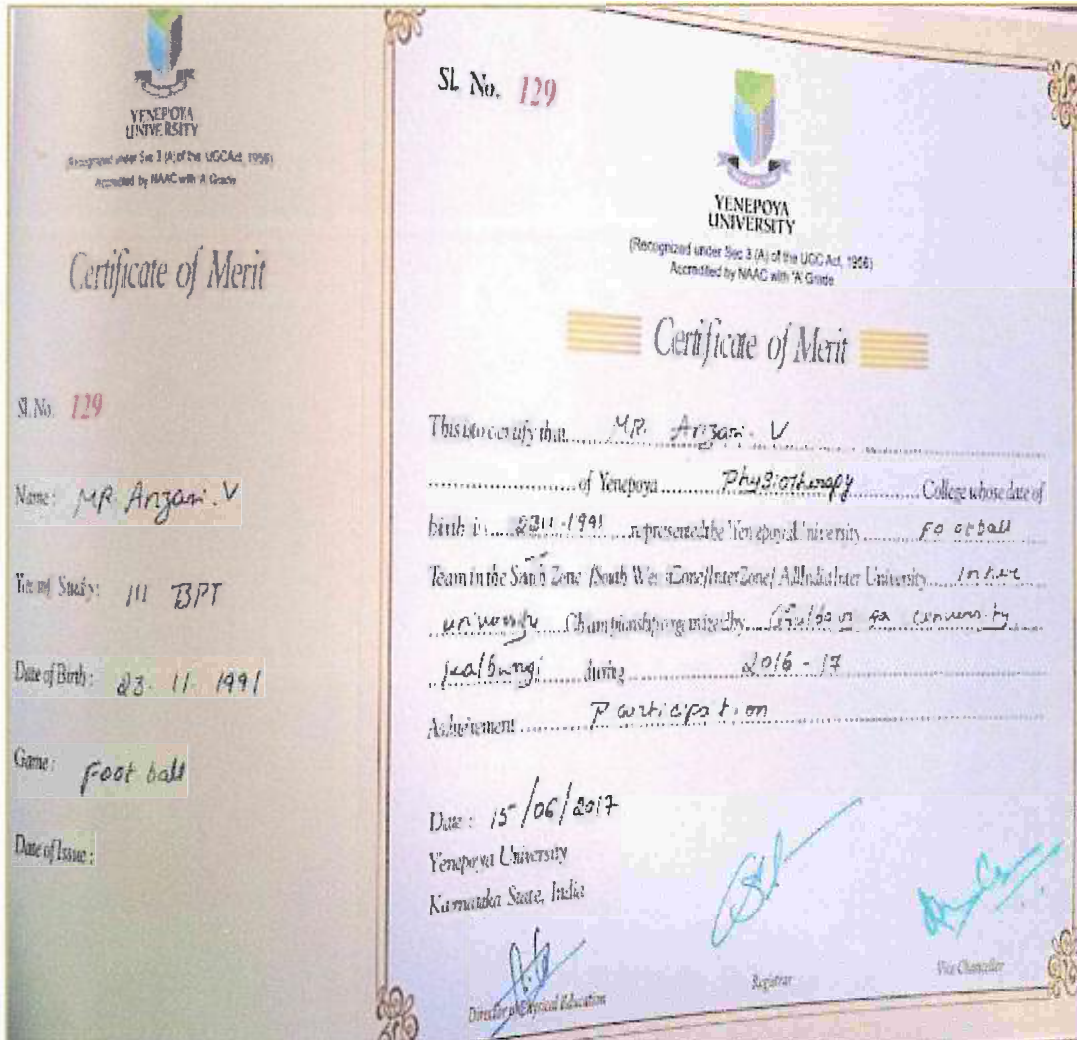 YENEPOYA
UNIVERSITY
(Recognized under Sec 3 (A) of the UGC Act, 1956)
Accredited by NAAC with 'A' Grade
Certificate of Merit
Sl. No. 129
Name : MR. Anzari. V
Year of Study : III BPT
Date of Birth : 23-11-1991
Game : Foot ball
Date of Issue :
Sl. No. 129
YENEPOYA
UNIVERSITY
(Recognized under Sec 3 (A) of the UGC Act, 1956)
Accredited by NAAC with 'A' Grade
Certificate of Merit
This is to certify that MR. Anzari. V
of Yenepoya Physiotherapy College whose date of
birth is 2311-1991 represented the Yenepoya University Football
Team in the South Zone /South West Zone/Inter Zone/ All India Inter University Inter
university Championship organized by university
during 2016-17
Achievement Participation
Date : 15/06/2017
Yenepoya University
Karnataka State, India
Director of Physical Education
Registrar
Vice Chancellor